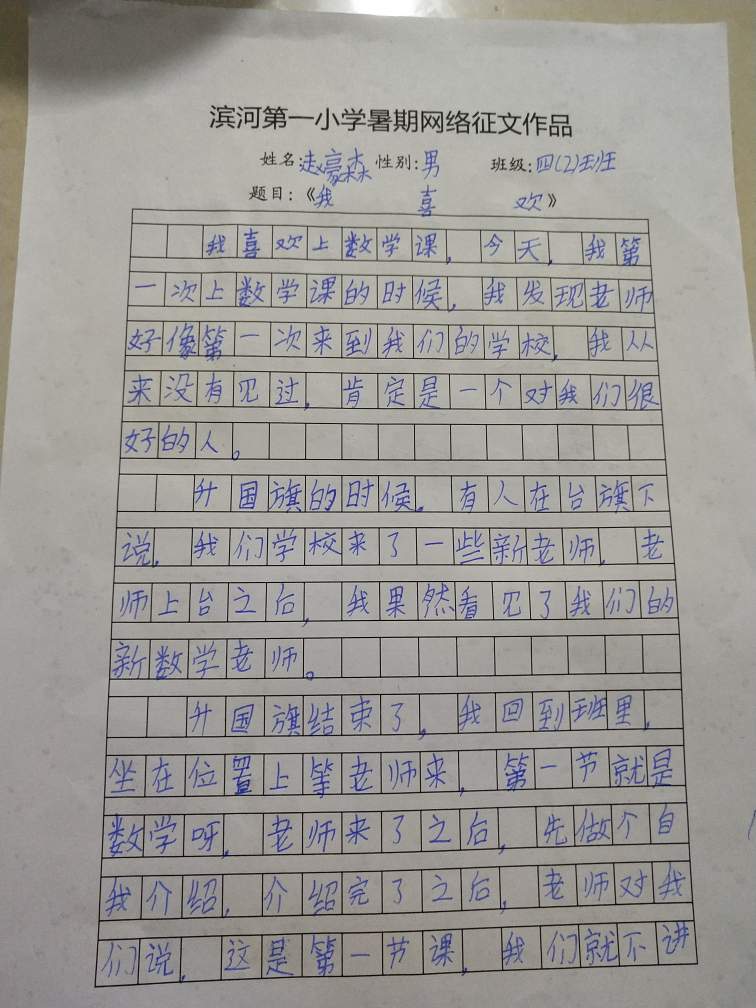 滨河第一小学暑期网络征文作品
姓名:赵豪森 性别:男 班级:四(2)班
题目:《我喜欢》
我喜欢上数学课,今天,我第
一次上数学课的时候,我发现老师
好像第一次来到我们的学校,我从
来没有见过,肯定是一个对我们很
好的人。
升国旗的时候,有人在台旗下
说,我们学校来了一些新老师,老
师上台之后,我果然看见了我们的
新数学老师。
升国旗结束了,我回到班里,
坐在位置上等老师来,第一节就是
数学呀,老师来了之后,先做个自
我介绍,介绍完了之后,老师对我
们说,这是第一节课,我们就不讲